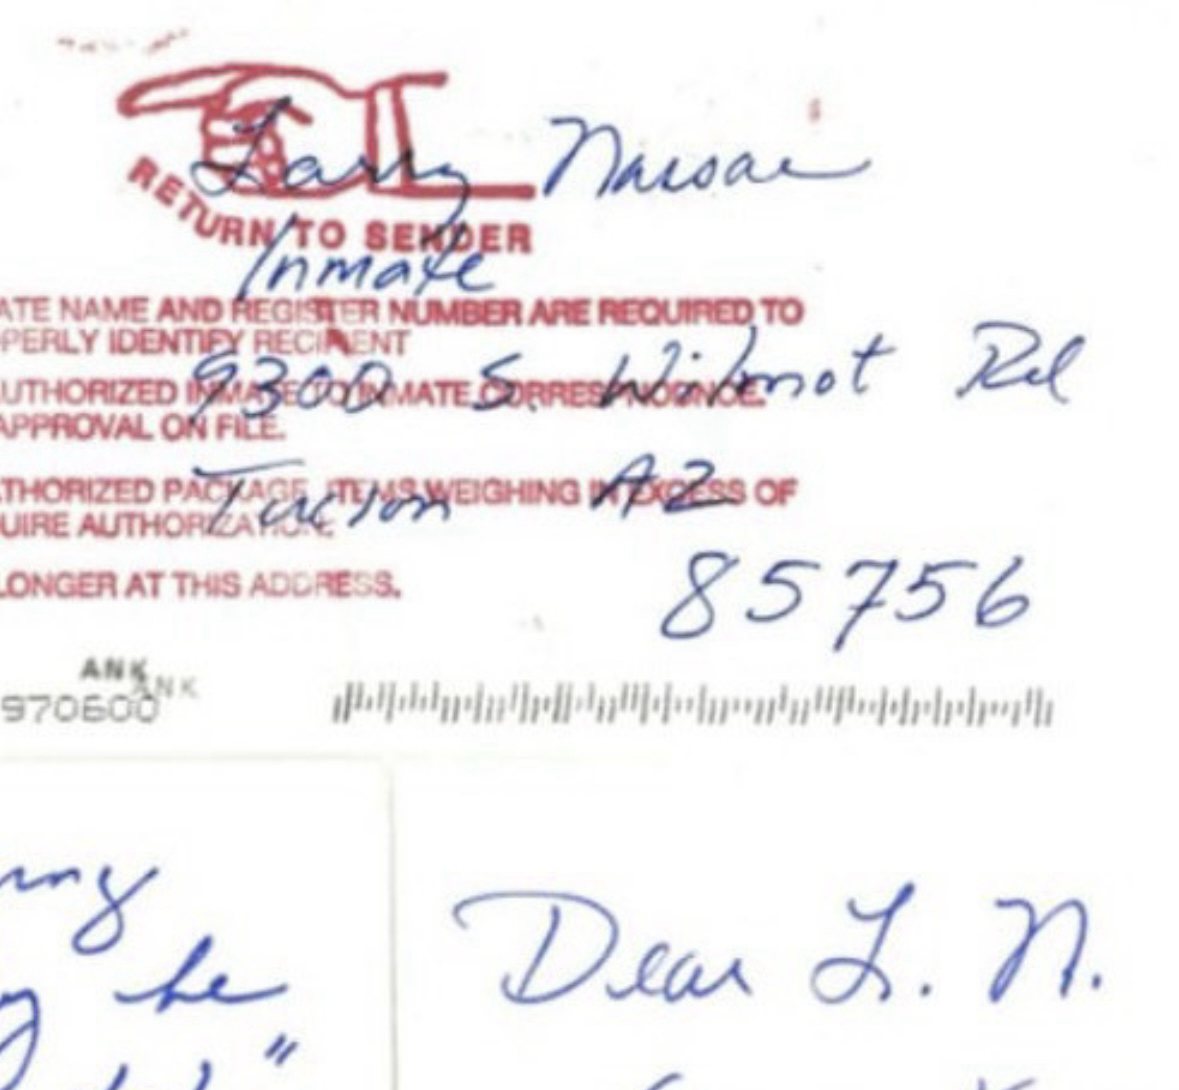 Larry Nassar
RETURN TO SENDER
Inmate
ATE NAME AND REGISTER NUMBER ARE REQUIRED TO
PERLY IDENTIFY RECIPIENT
9300 S. Wilmot Rd
UTHORIZED INMATE TO INMATE CORRESPONDNCE.
APPROVAL ON FILE.
Tucson AZ
THORIZED PACKAGE, ITEMS WEIGHING IN EXCESS OF
UIRE AUTHORIZATION.
85756
LONGER AT THIS ADDRESS.
ANK
ANK
970600
Dear L. N.
he
"